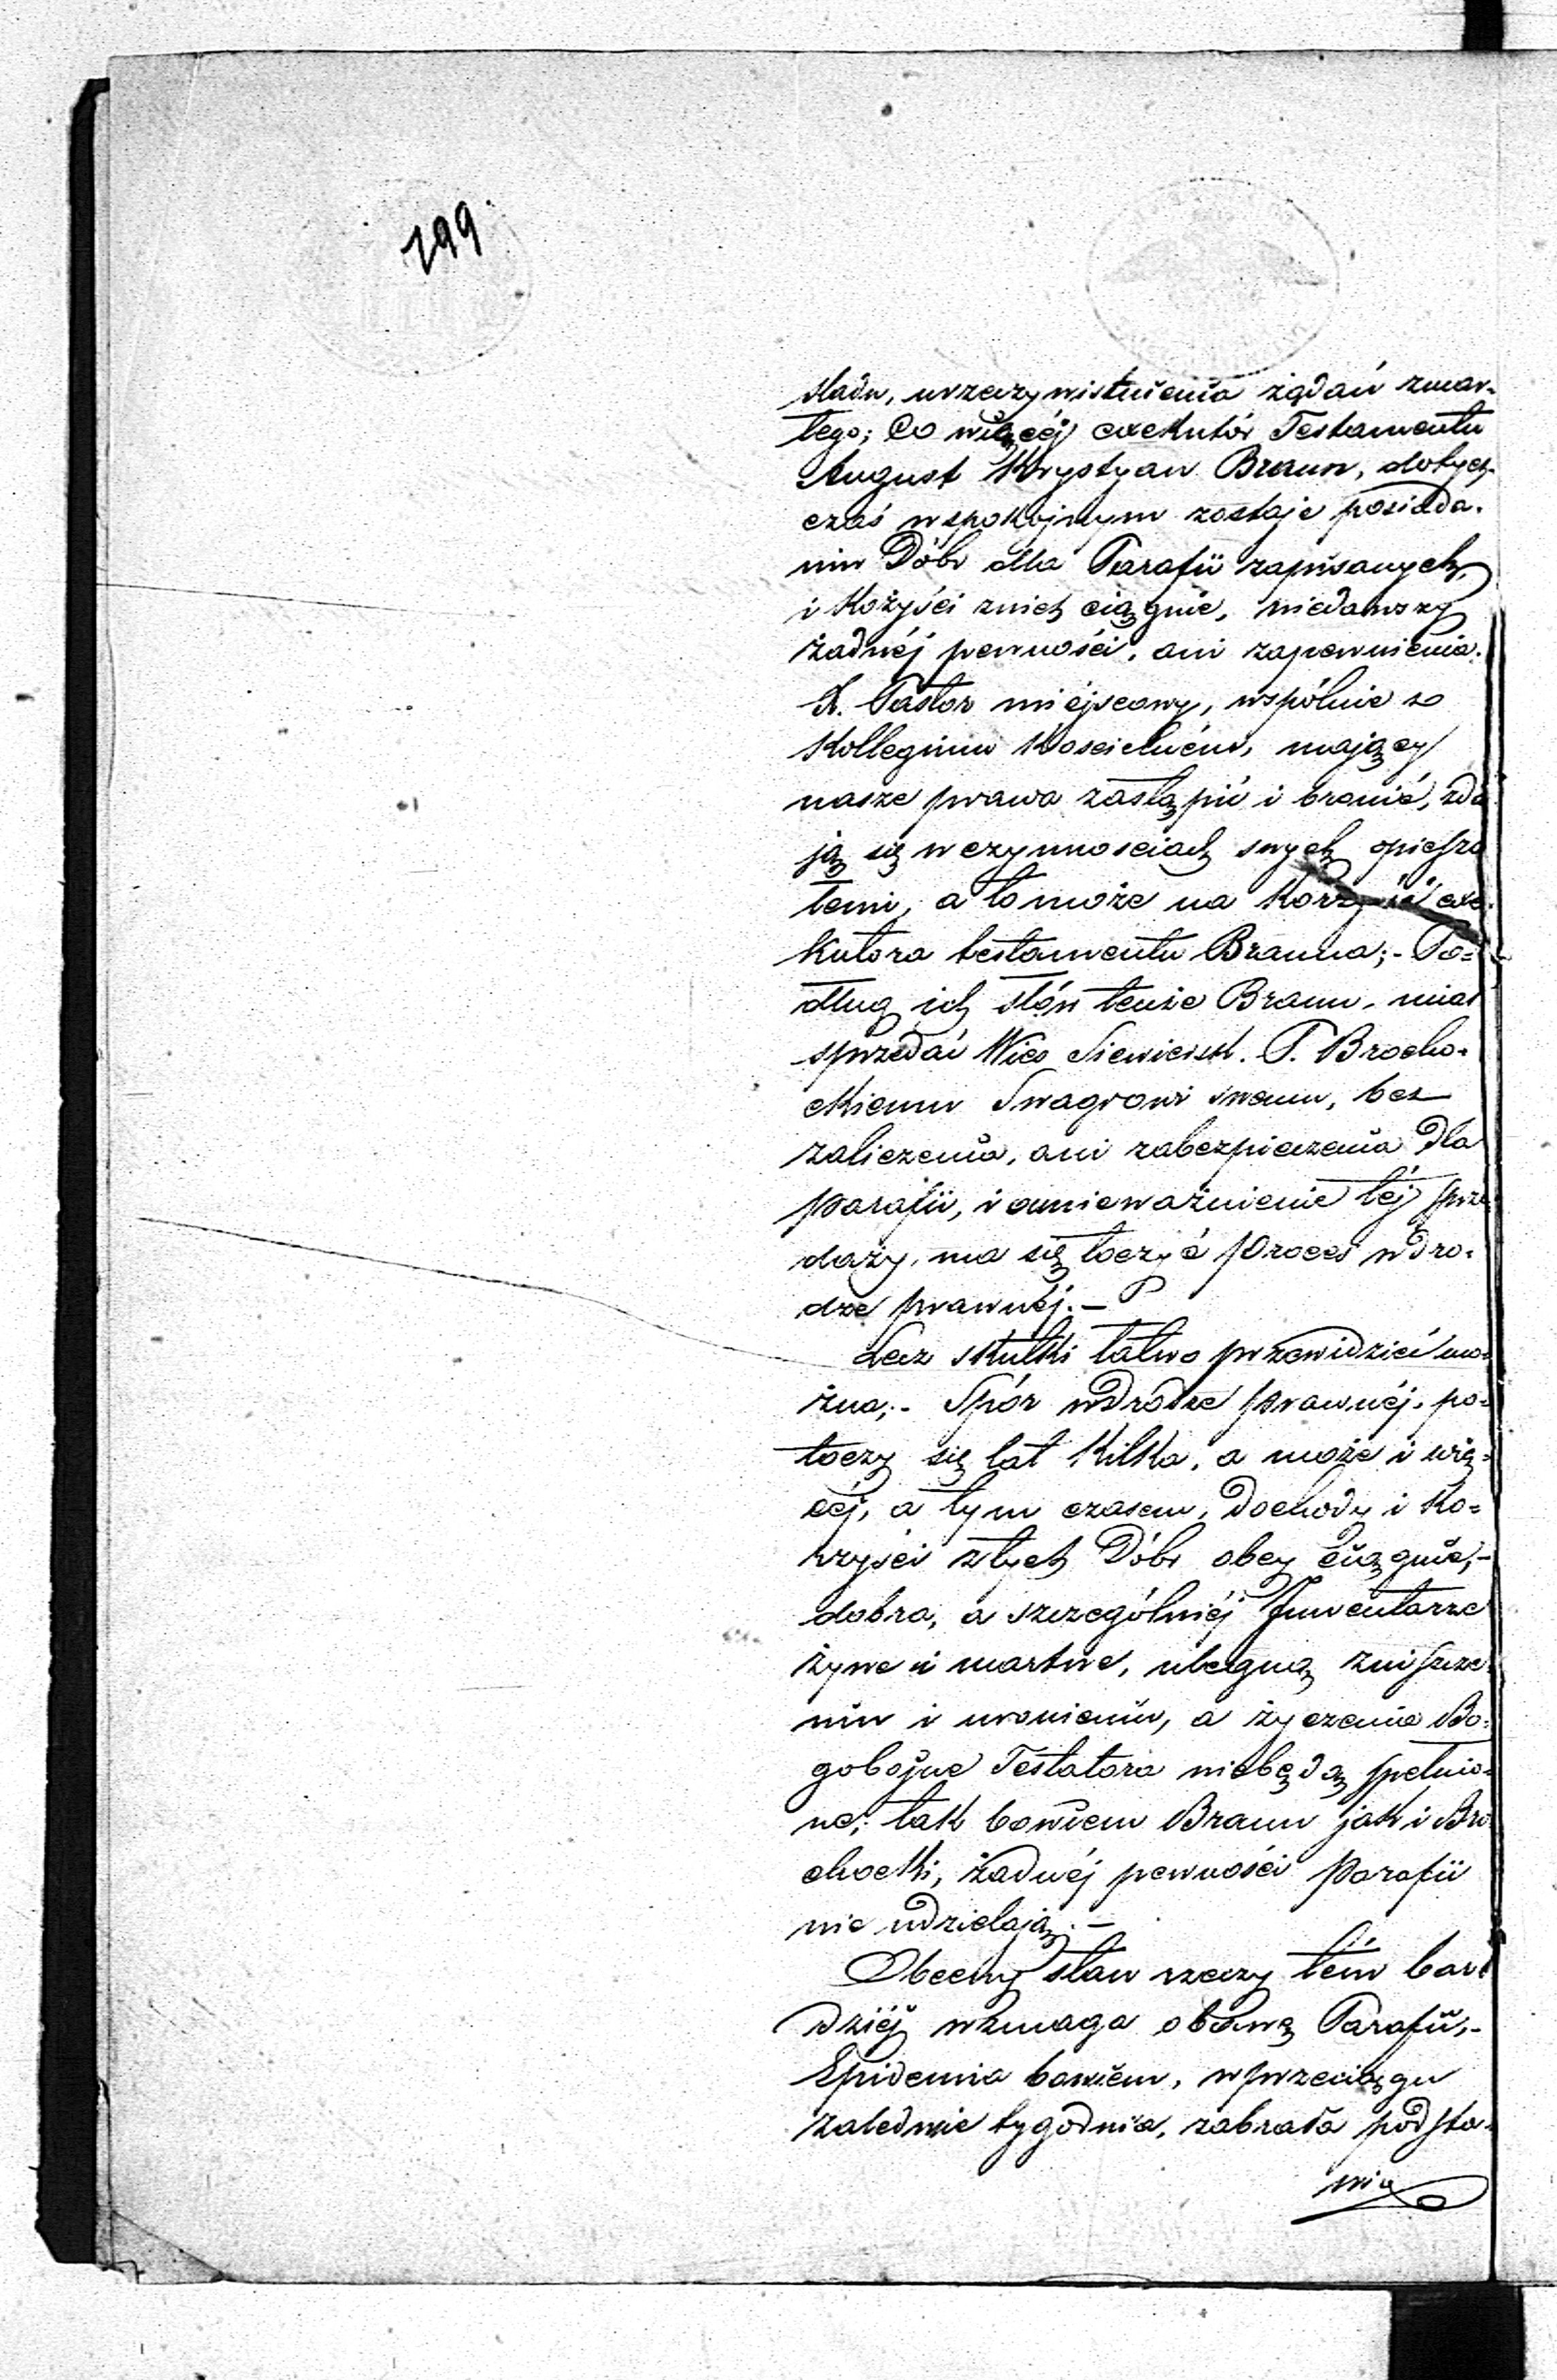 199.
sladu, urzeczywistnienia żądań zmar-
łego; Co więcéj exekutór Testamentu
August Krystyan Braun, dotych-
czas wspokojnym zostaje posiada-
niu Dóbr dla Parafii zapisanych,
i Kożyści znich ciągnie, niedawszy
żadnéj pewności, ani zapewnienia.
X. Pastor miéjscowy, wspólnie z
Kollegium Koscielném, mający
nasze prawa zastąpić i bronić, zda
ją się wczynnosciach swych opiesza
łemi, a to może na Korzyść exe-
kutora testamentu Brauna;- Po=
dług ich słów tenże Braun, miał
sprzedać Wieś Siewiersk. P. Brocho-
ckiemu Swagrowi swemu, bez
zaliczenia, ani zabezpieczenia dla
Parafii, i ounieważnienie téj sprze
daży, ma się toczyć Proces wdro-
dze prawnéj.-
Lecz skutki łatwo przewidzieć mo-
żna;- Spór wdrodze prawnéj, po-
toczy się lat Kilka, a może i wię-
céj, a tym czasem, dochody i Ko=
rzyści ztych Dóbr obcy ciągnie,-
dobra, a szczególniéj Inwentarze
żywe i martwe, ulegną zniszcze-
niu i uronieniu, a życzenia Bo-
gobojne Testatora niebędą spełnio-
ne; tak bowiem Braun jak i Bro
chocki, żadnéj pewności Parafii
nie udzielają.-
Obecny stan rzeczy tém bar
dziéj wzmaga obawę Parafii,-
Epidemia bowiem, wprzeciągu
zaledwie tygodnia, zabrała podsta-
wia